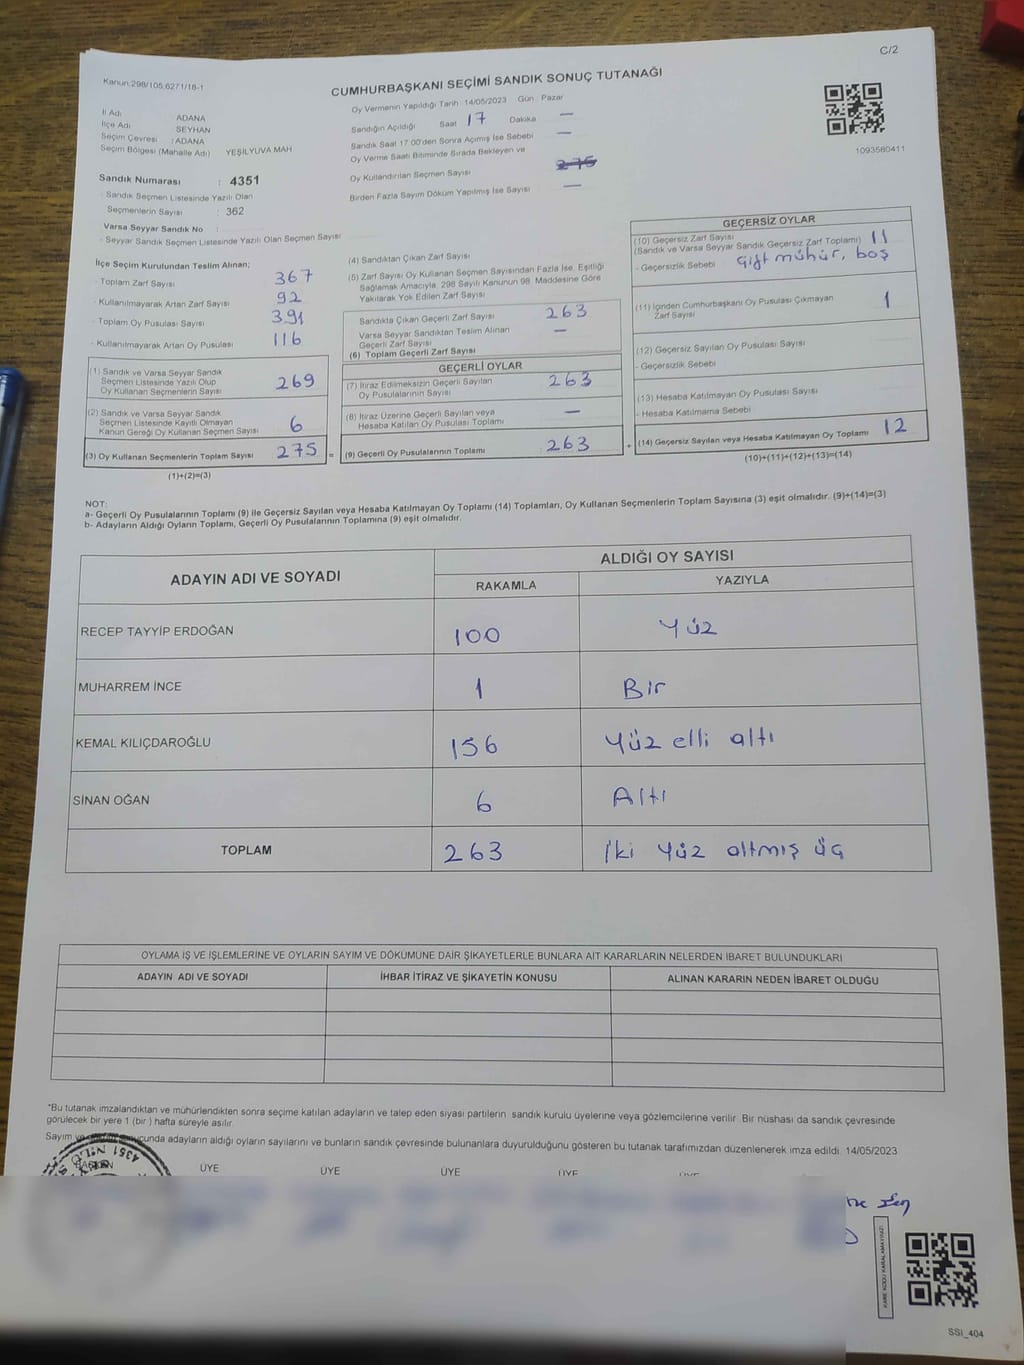 C/2
Kanun:298/105,6271/18-1
CUMHURBAŞKANI SEÇİMİ SANDIK SONUÇ TUTANAĞI
İl Adı ADANA
İlçe Adı SEYHAN
Seçim Çevresi : ADANA
Seçim Bölgesi (Mahalle Adı) YEŞİLYUVA MAH
Oy Vermenin Yapıldığı Tarih :14/05/2023 Gün : Pazar
Sandığın Açıldığı Saat 17 Dakika —
Sandık Saat 17:00'den Sonra Açımış İse Sebebi —
Oy Verme Saati Bitiminde Sırada Bekleyen ve
Oy Kullandırılan Seçmen Sayısı 275
Birden Fazla Sayım Döküm Yapılmış İse Sayısı —
1093560411
Sandık Numarası : 4351
Sandık Seçmen Listesinde Yazılı Olan
Seçmenlerin Sayısı : 362
Varsa Seyyar Sandık No :
- Seyyar Sandık Seçmen Listesinde Yazılı Olan Seçmen Sayısı
İlçe Seçim Kurulundan Teslim Alınan;
- Toplam Zarf Sayısı 367
- Kullanılmayarak Artan Zarf Sayısı 92
- Toplam Oy Pusulası Sayısı 391
- Kullanılmayarak Artan Oy Pusulası 116
(1) Sandık ve Varsa Seyyar Sandık
Seçmen Listesinde Yazılı Olup
Oy Kullanan Seçmenlerin Sayısı 269
(2) Sandık ve Varsa Seyyar Sandık
Seçmen Listesinde Kayıtlı Olmayan
Kanun Gereği Oy Kullanan Seçmen Sayısı 6
(3) Oy Kullanan Seçmenlerin Toplam Sayısı 275 =
(1)+(2)=(3)
(4) Sandıktan Çıkan Zarf Sayısı
(5) Zarf Sayısı Oy Kullanan Seçmen Sayısından Fazla İse, Eşitliği
Sağlamak Amacıyla, 298 Sayılı Kanunun 98. Maddesine Göre
Yakılarak Yok Edilen Zarf Sayısı
Sandıkta Çıkan Geçerli Zarf Sayısı 263
Varsa Seyyar Sandıktan Teslim Alınan
Geçerli Zarf Sayısı —
(6) Toplam Geçerli Zarf Sayısı
GEÇERLİ OYLAR
(7) İtiraz Edilmeksizin Geçerli Sayılan
Oy Pusulalarının Sayısı 263
(8) İtiraz Üzerine Geçerli Sayılan veya
Hesaba Katılan Oy Pusulası Toplamı —
(9) Geçerli Oy Pusulalarının Toplamı 263 +
GEÇERSİZ OYLAR
(10) Geçersiz Zarf Sayısı
(Sandık ve Varsa Seyyar Sandık Geçersiz Zarf Toplamı) 11
- Geçersizlik Sebebi Çift mühür, boş
(11) İçinden Cumhurbaşkanı Oy Pusulası Çıkmayan
Zarf Sayısı 1
(12) Geçersiz Sayılan Oy Pusulası Sayısı
- Geçersizlik Sebebi
(13) Hesaba Katılmayan Oy Pusulası Sayısı
- Hesaba Katılmama Sebebi
(14) Geçersiz Sayılan veya Hesaba Katılmayan Oy Toplamı 12
(10)+(11)+(12)+(13)=(14)
NOT:
a- Geçerli Oy Pusulalarının Toplamı (9) ile Geçersiz Sayılan veya Hesaba Katılmayan Oy Toplamı (14) Toplamları, Oy Kullanan Seçmenlerin Toplam Sayısına (3) eşit olmalıdır. (9)+(14)=(3)
b- Adayların Aldığı Oyların Toplamı, Geçerli Oy Pusulalarının Toplamına (9) eşit olmalıdır.
ADAYIN ADI VE SOYADI ALDIĞI OY SAYISI
RAKAMLA YAZIYLA
RECEP TAYYİP ERDOĞAN 100 Yüz
MUHARREM İNCE 1 Bir
KEMAL KILIÇDAROĞLU 156 Yüz elli altı
SİNAN OĞAN 6 Altı
TOPLAM 263 İki yüz altmış üç
OYLAMA İŞ VE İŞLEMLERİNE VE OYLARIN SAYIM VE DÖKÜMÜNE DAİR ŞİKAYETLERLE BUNLARA AİT KARARLARIN NELERDEN İBARET BULUNDUKLARI
ADAYIN ADI VE SOYADI İHBAR İTİRAZ VE ŞİKAYETİN KONUSU ALINAN KARARIN NEDEN İBARET OLDUĞU
*Bu tutanak imzalandıktan ve mühürlendikten sonra seçime katılan adayların ve talep eden siyasi partilerin sandık kurulu üyelerine veya gözlemcilerine verilir. Bir nüshası da sandık çevresinde
görülecek bir yere 1 (bir ) hafta süreyle asılır.
Sayım ve adayların aldığı oyların sayılarını ve bunların sandık çevresinde bulunanlara duyurulduğunu gösteren bu tutanak tarafımızdan düzenlenerek imza edildi. 14/05/2023
4351
BAŞKAN ÜYE ÜYE ÜYE ÜYE
KARE KODU KARALAMAYINIZ!
SSI_404